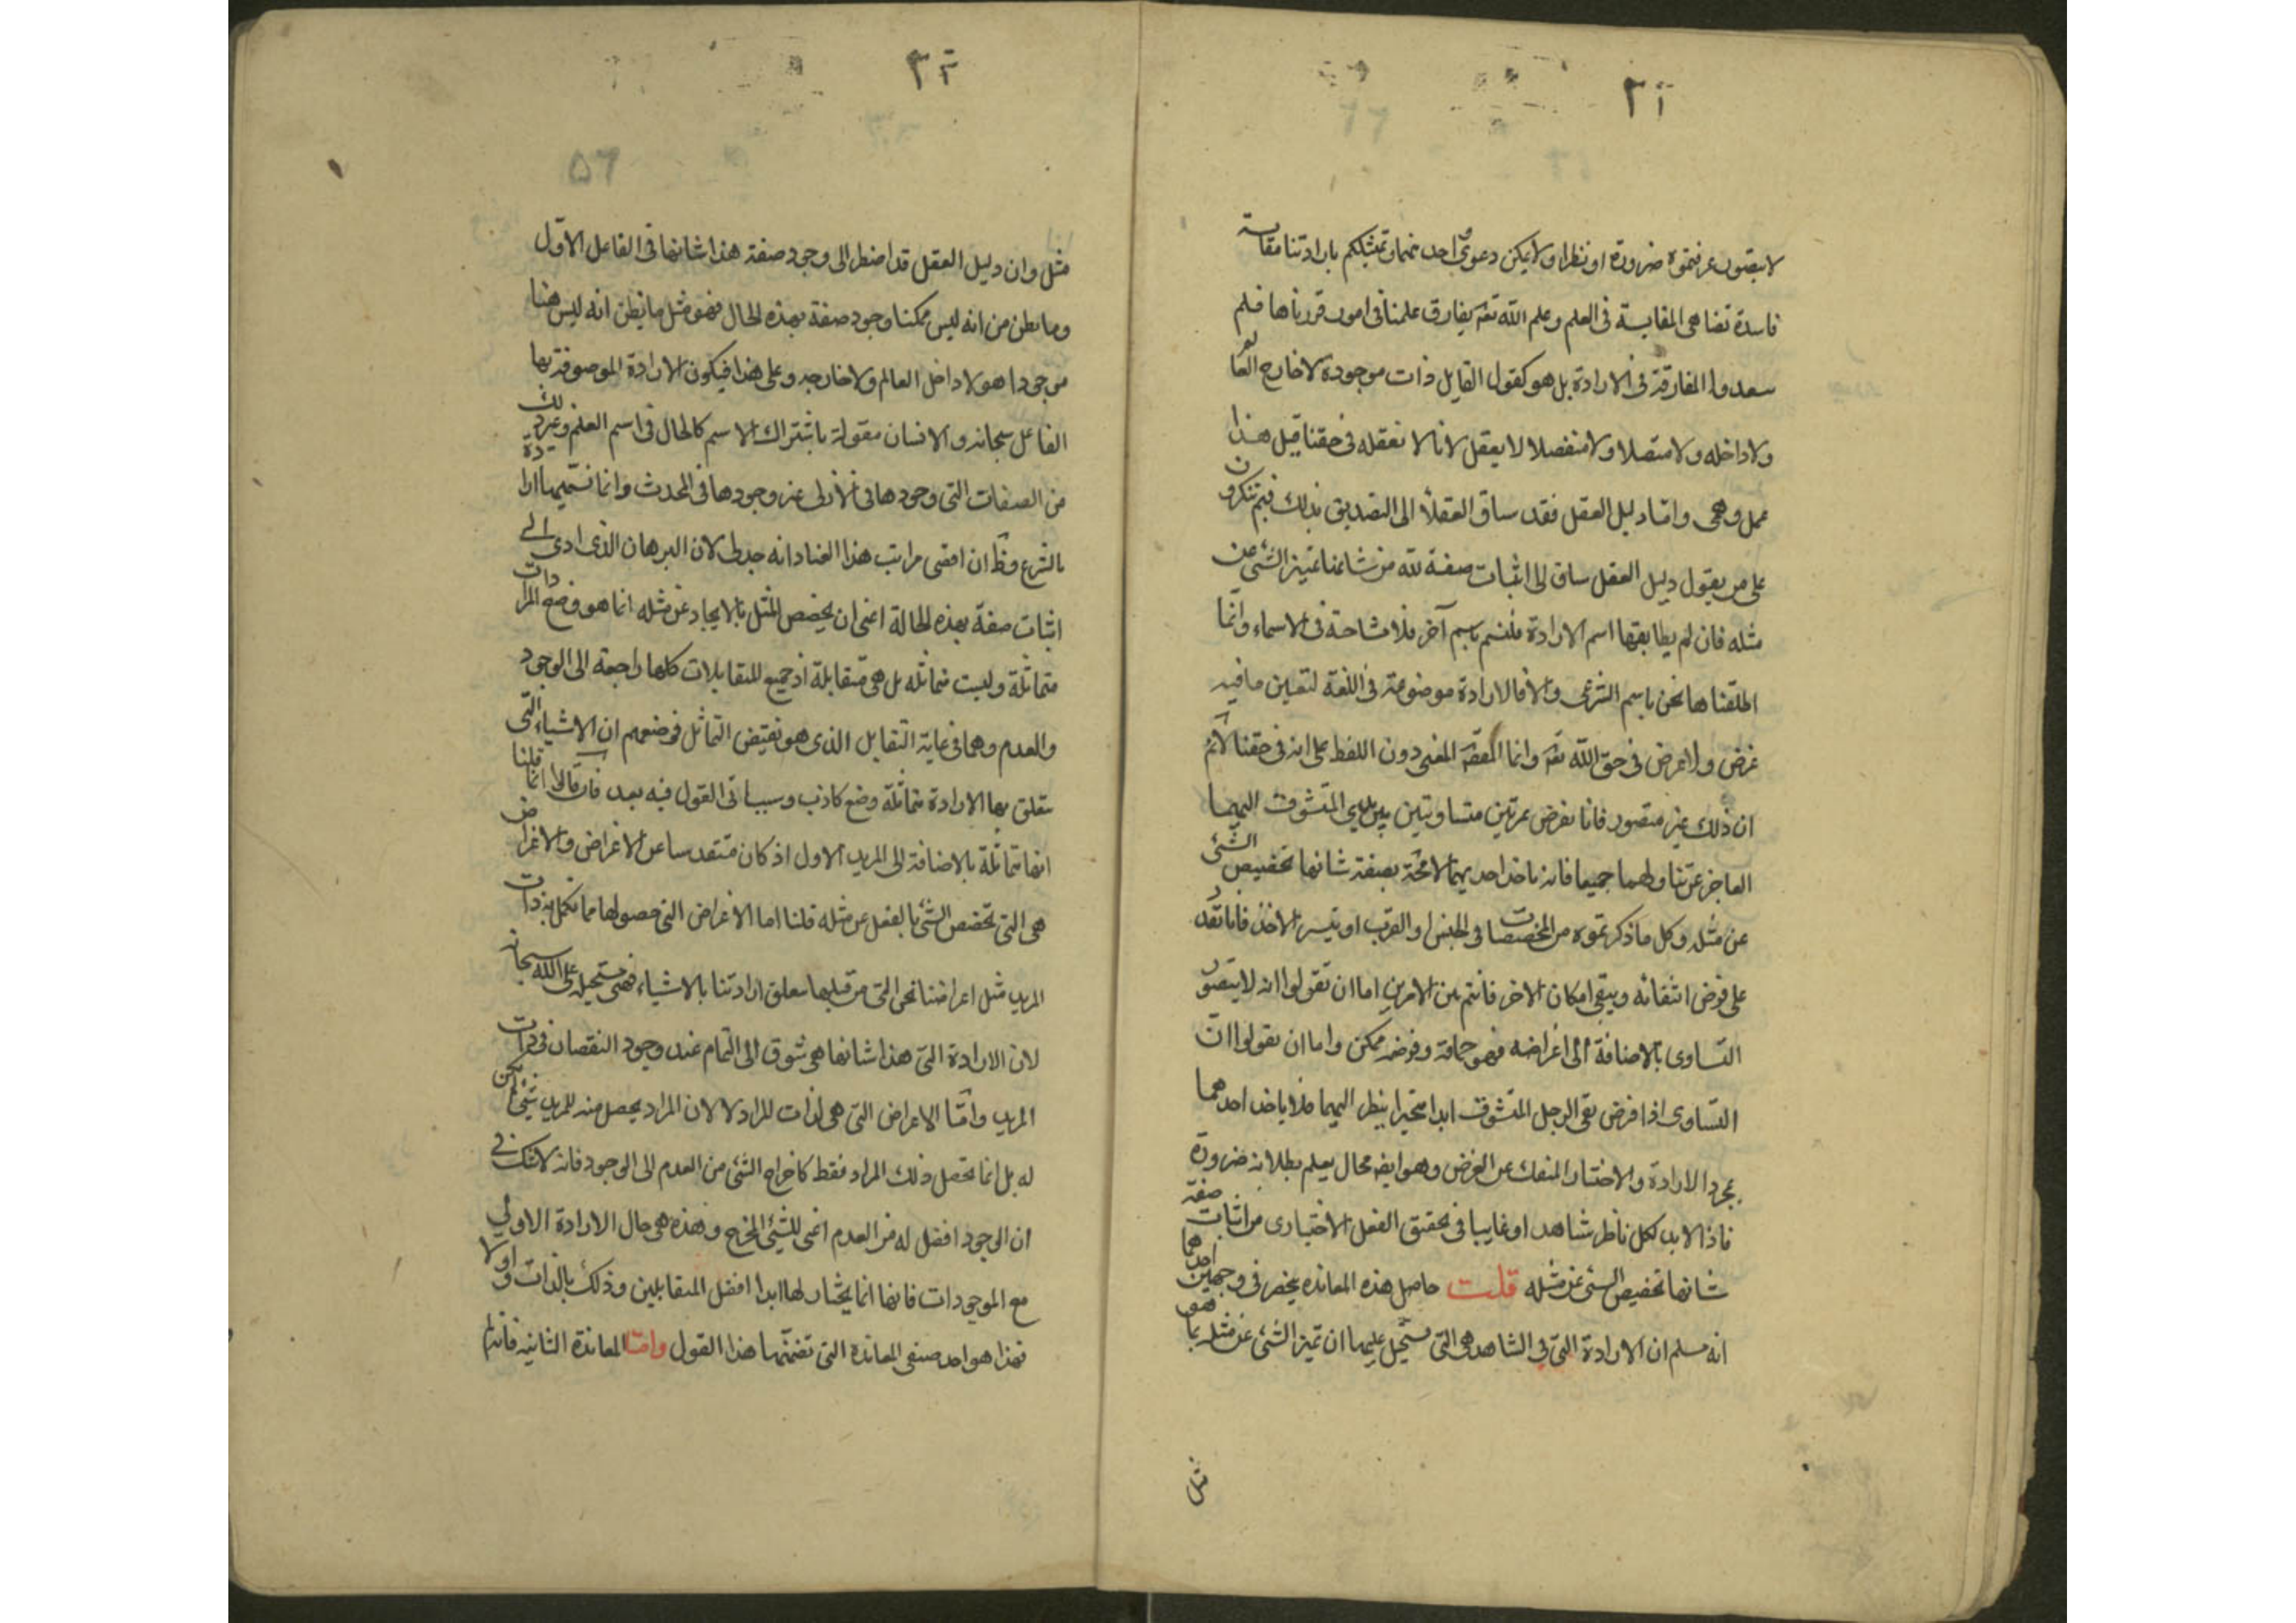 ٣١
لا يتصور عرفتموه ضرورة او نظرا ولا يمكن دعوى احد منهما وتمثيلكم بارادتنا مقايسة
فاسدة تضاهى المقايسة فى العلم وعلم الله تعه يفارق علمنا فى امور قررناها فلم
سعدوا المفارقة فى الارادة بل هو كقول القايل ذات موجودة لا خارج العالم
ولا داخله ولا متصلا ولا منفصلا لا يعقل لانا لا نعقله فى حقنا قيل هذا
عمل وهمى واما دليل العقل فقد ساق العقلاء الى التصديق بذلك فبم تنكرون
على من يقول دليل العقل ساق الى اثبات صفة لله من شانها تميز الشئ عن
مثله فان لم يطابقها اسم الارادة فلنسم باسم آخر فلا مشاحة فى الاسماء وانما
اطلقناها نحن باسم الشرعى والا فالارادة موضوعة فى اللغة لتعيين ما فيه
غرض ولا غرض فى حق الله تعه وانما المقصه المعنى دون اللفظ على انه فى حقنا لا نم
ان ذلك غير متصور فانا نفرض تمرتين متساويتين بين يدي المتشوق اليهما
العاجز عن تناولهما جميعا فانه ياخذ احديهما لا محة بصفة شانها تخصيص الشئ
عن مثله وكل ما ذكرتموه من المخصصات فى الحسن او القرب او تيسر الاخذ فانا نقدر
على فرض انتفائه ويبقى امكان الاخر فانتم بين الامرين اما ان تقولوا انه لا يتصور
التساوى بالاضافة الى اغراضه فهو حماقة وفرضه ممكن واما ان يقولوا ان
التساوى اذا فرض بقى الرجل المتشوق ابدا متحيرا ينظر اليهما فلا ياخذ احدهما
بمجرد الارادة والاختيار المنفك عن الغرض وهو ايضه محال يعلم بطلانه ضرورة
فاذا لا بد لكل ناظر شاهد او غايبا فى تحقيق الفعل الاختيارى من اثبات صفة
شانها تخصيص الشئ عن مثله قلت حاصل هذه المعانده ينحصر فى وجهين احدهما
انه مسلم ان الارادة التى فى الشاهد هى التى يستحيل عليها ان تميز الشئ عن مثله بما هو
مثل
٣٢
٥٦
مثل وان دليل العقل قد اضطر الى وجود صفة هذا شانها فى الفاعل الاول
وما يظن من انه ليس ممكنا وجود صفة بهذه الحال فهو مثل ما يظن انه ليس هنا
موجودا هو لا داخل العالم ولا خارجه وعلى هذا فيكون الارادة الموصوفة بها
الفاعل سبحانه والانسان مقولة باشتراك الاسم كالحال فى اسم العلم وغير ذلك
من الصفات التى وجودها فى الازلى غير وجودها فى المحدث وانما نسميها ارادة
بالشرع وظ ان اقصى مراتب هذا العناد انه جدلى لان البرهان الذى ادى الى
اثبات صفة بهذه الحالة اعنى ان يخصص المثل بالايجاد عن مثله انما هو وضع المرادات
متماثلة وليست متماثله بل هى متقابلة اذ جميع المتقابلات كلها راجعة الى الوجود
والعدم وهما فى غاية التقابل الذى هو نقيض التماثل فوضعهم ان الاشياء التى
تتعلق بها الارادة متماثلة وضع كاذب وسياتى القول فيه بعد فان قالوا انما قلنا
انها متماثلة بالاضافة الى المريد الاول اذ كان متقدسا عن الاغراض والاغراض
هى التى تخصص الشئ بالفعل عن مثله قلنا اما الاغراض التى حصولها مما تكمل به ذات
المريد مثل اغراضنا نحن التى من قبلها تتعلق ارادتنا بالاشياء فهى مستحيلة على الله سبحانه
لان الارادة التى هذا شانها هى شوق الى التمام عند وجود النقصان فى ذات
المريد واما الاغراض التى هى لذات المراد لا لان المراد يحصل منه للمريد شئ لم يكن
له بل انما تحصل ذلك المراد فقط كاخراج الشئ من العدم الى الوجود فانه لا شك فى
ان الوجود افضل له من العدم اعنى للشئ المخرج وهذه هى حال الارادة الاولى
مع الموجودات فانها انما يختار لها ابدا افضل المتقابلين وذلك بالذات واولا
فهذا هو احد صنفى المعانده التى تضمنها هذا القول واما المعاندة الثانية فانه لم